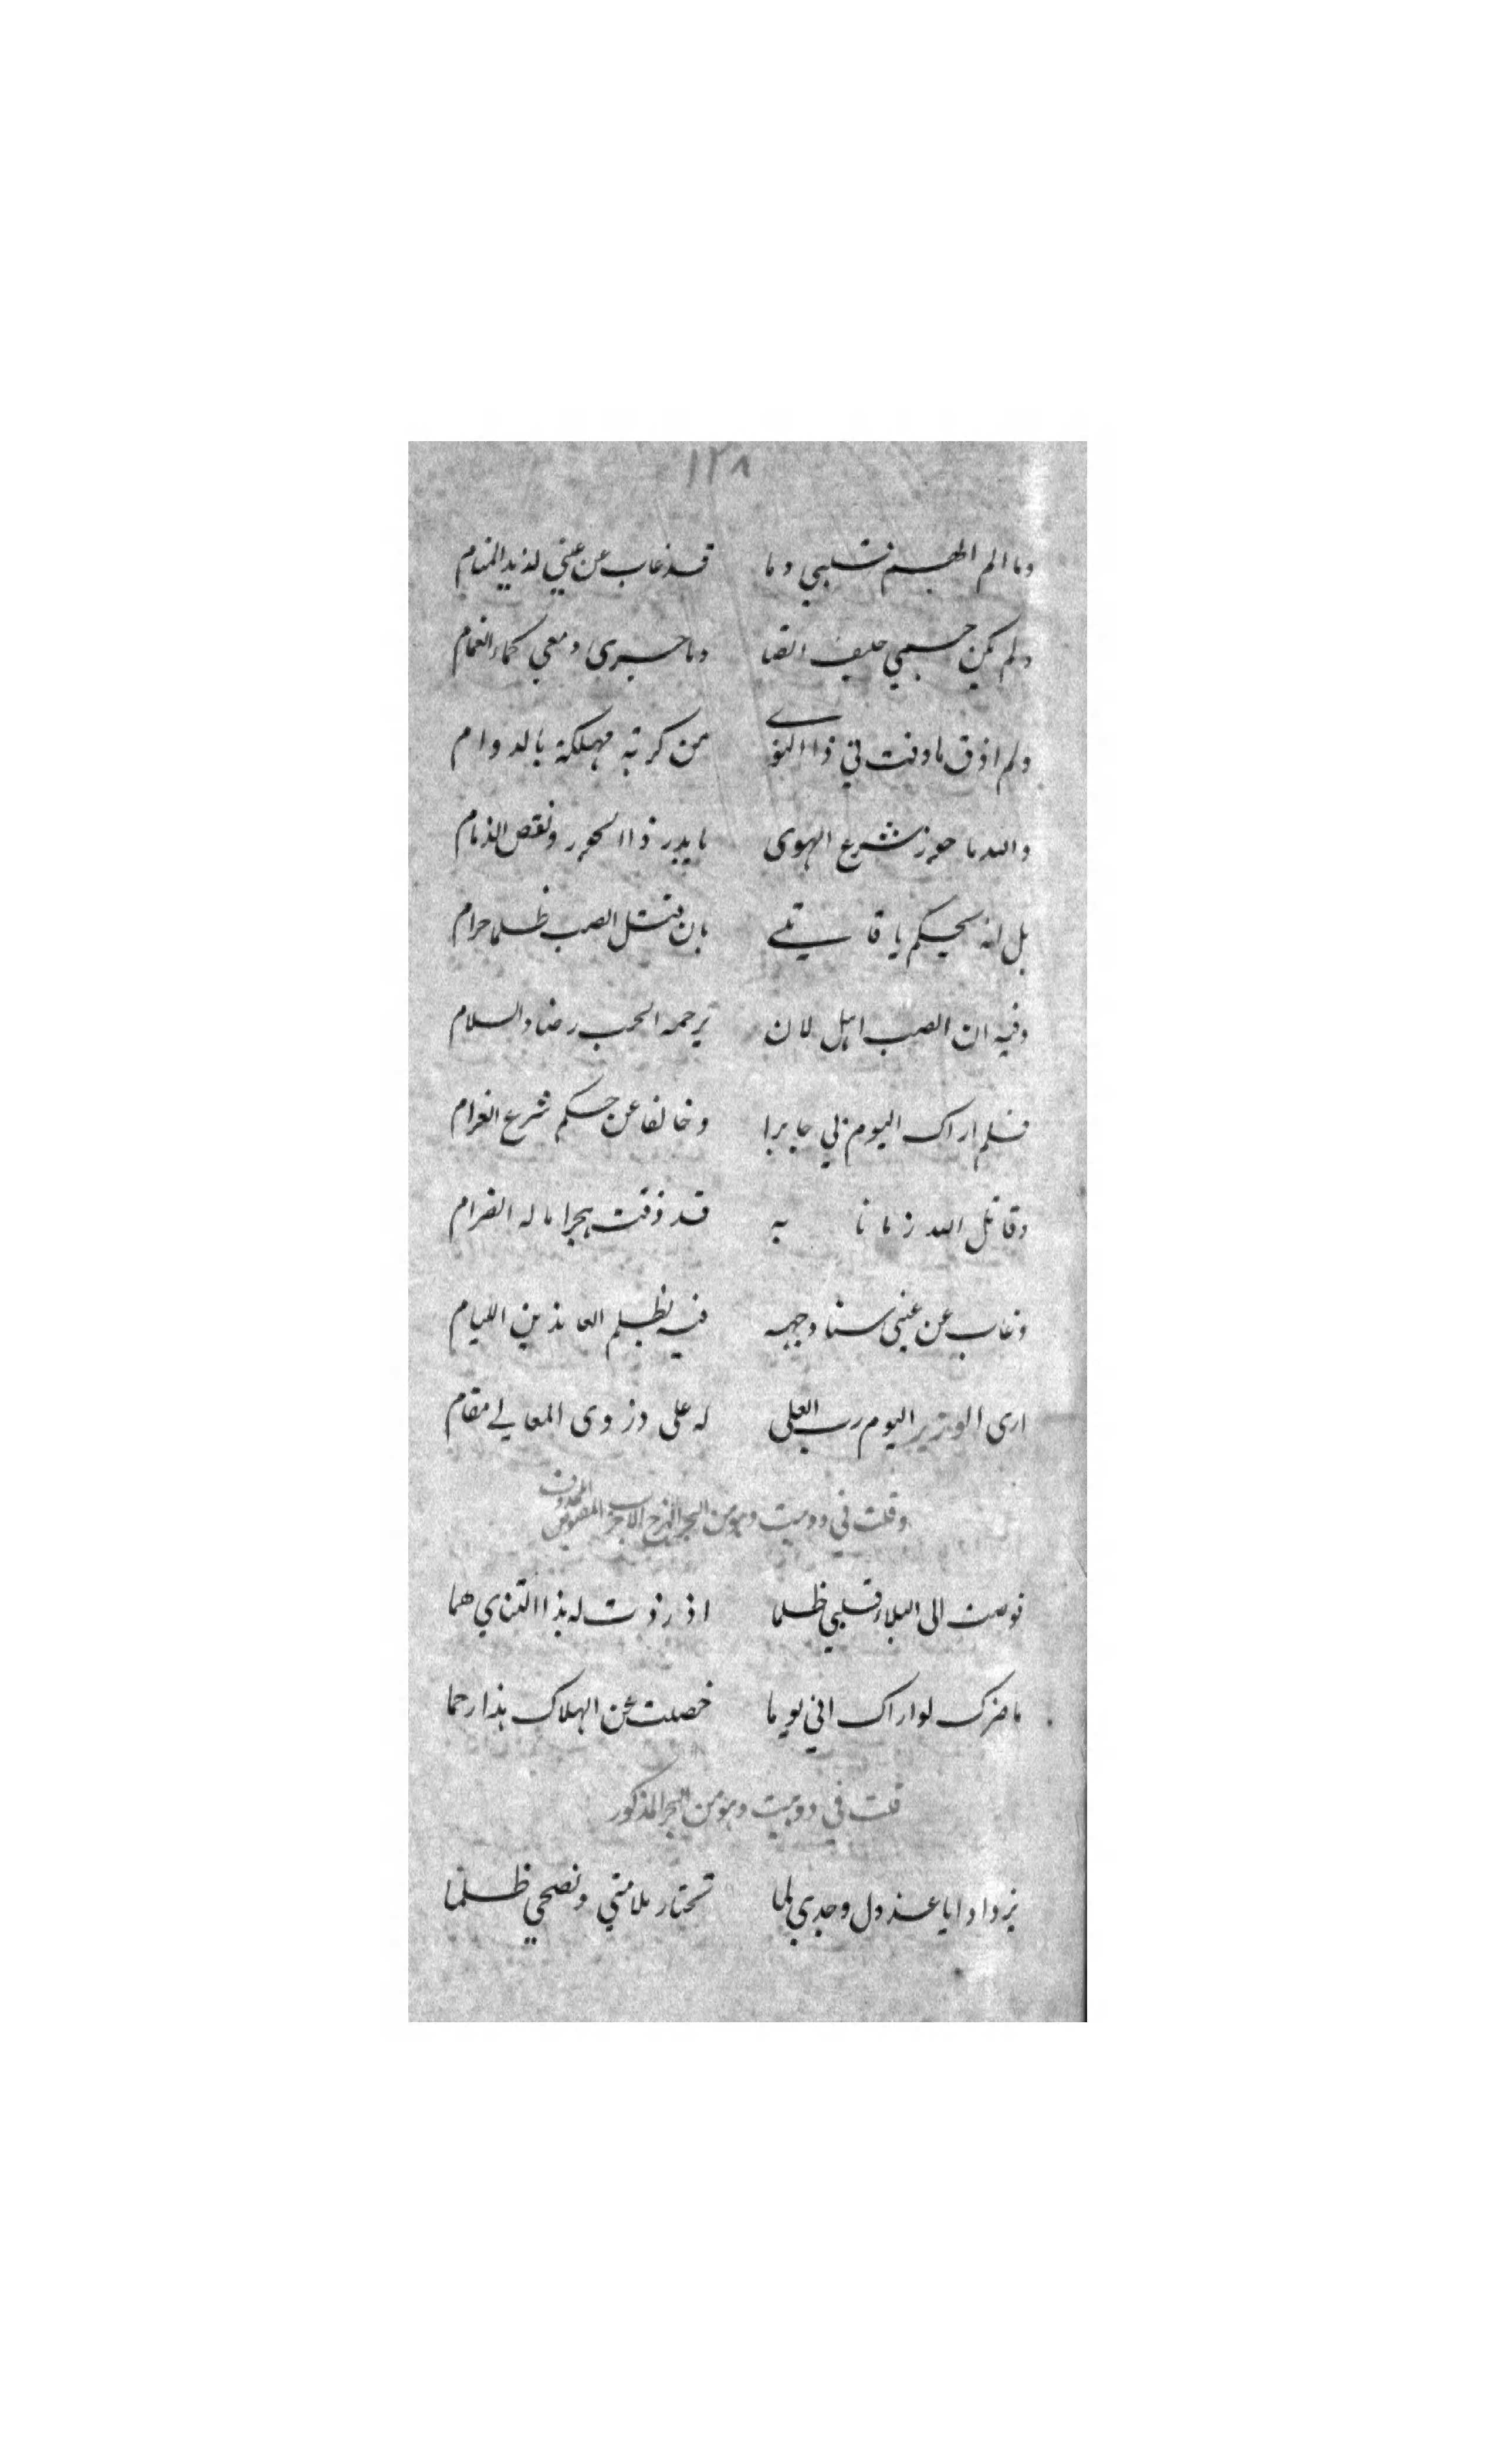 ١٢٨
وما الم الهم قلبي وما قد غاب عن عيني لذيذ المنام
ولم يكن جسمي حليف الضنا وما جرى دمعي كماء الغمام
ولم اذق ما ذقت في ذا النوى من كربة مهلكة بالدوام
والله ما جوز شرع الهوى يا بدر ذا الجور ونقض الذمام
بل انه يحكم يا قاتلي بان قتل الصب ظلما حرام
وفيه ان الصب اهل لان يرحمه الحب رضا والسلام
فلم اراك اليوم لي جابرا وخالفا عن حكم شرع الغرام
وقاتل الله زمانا به قد ذقت هجرا ماله انصرام
وغاب عن عيني سنا وجهه فيه بظلم العاذلين الليام
ارى الوزير اليوم رب العلى له على ذروى المعالي مقام
وقلت في دوبيت وهو من البحر الهزج الاخرب المقبوض المحذوف
فوضت الى البلاء قلبي ظلما اذ زدت له بذا التنائي هما
ما ضرك لو اراك اني يوما خصلت عن الهلاك بذا رحما
قلت في دوبيت وهو من البحر المذكور
يزداد ايا عذول وجدي لما تختار ملامتي ونصحي ظلما